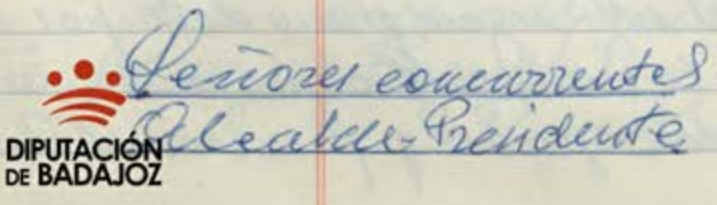 Señores concurrentes
Alcalde-Presidente
DIPUTACIÓN
DE BADAJOZ